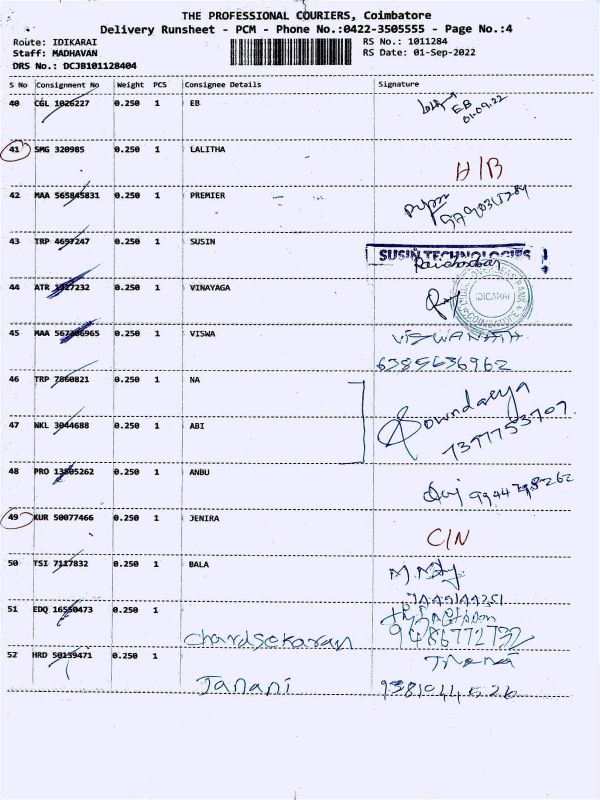 THE PROFESSIONAL COURIERS, Coimbatore
Delivery Runsheet - PCM - Phone No.:0422-3505555 - Page No.:4
Route: IDIKARAI RS No.: 1011284
Staff: MADHAVAN RS Date: 01-Sep-2022
DRS No.: DCJB101128404
S No Consignment No Weight PCS Consignee Details Signature
40 CGL 1026227 0.250 1 EB EB 01.09.22
41 SMG 320985 0.250 1 LALITHA H/B
42 MAA 565845831 0.250 1 PREMIER
43 TRP 4697247 0.250 1 SUSIN SUSIN TECHNOLOGIES
44 ATR 0.250 1 VINAYAGA IDICARAI COIMBATORE
45 MAA 0.250 1 VISWA VISWANATH
6385636962
46 TRP 7860821 0.250 1 NA Sowndarya
47 NKL 3044688 0.250 1 ABI 7397753707.
48 PRO 13805262 0.250 1 ANBU 9944798262
49 KUR 50077466 0.250 1 JENIRA C/N
50 TSI 7127832 0.250 1 BALA
51 EDQ 16550473 0.250 1 Chandsekaran 9486772732
52 HRD 50159471 0.250 1 Janani